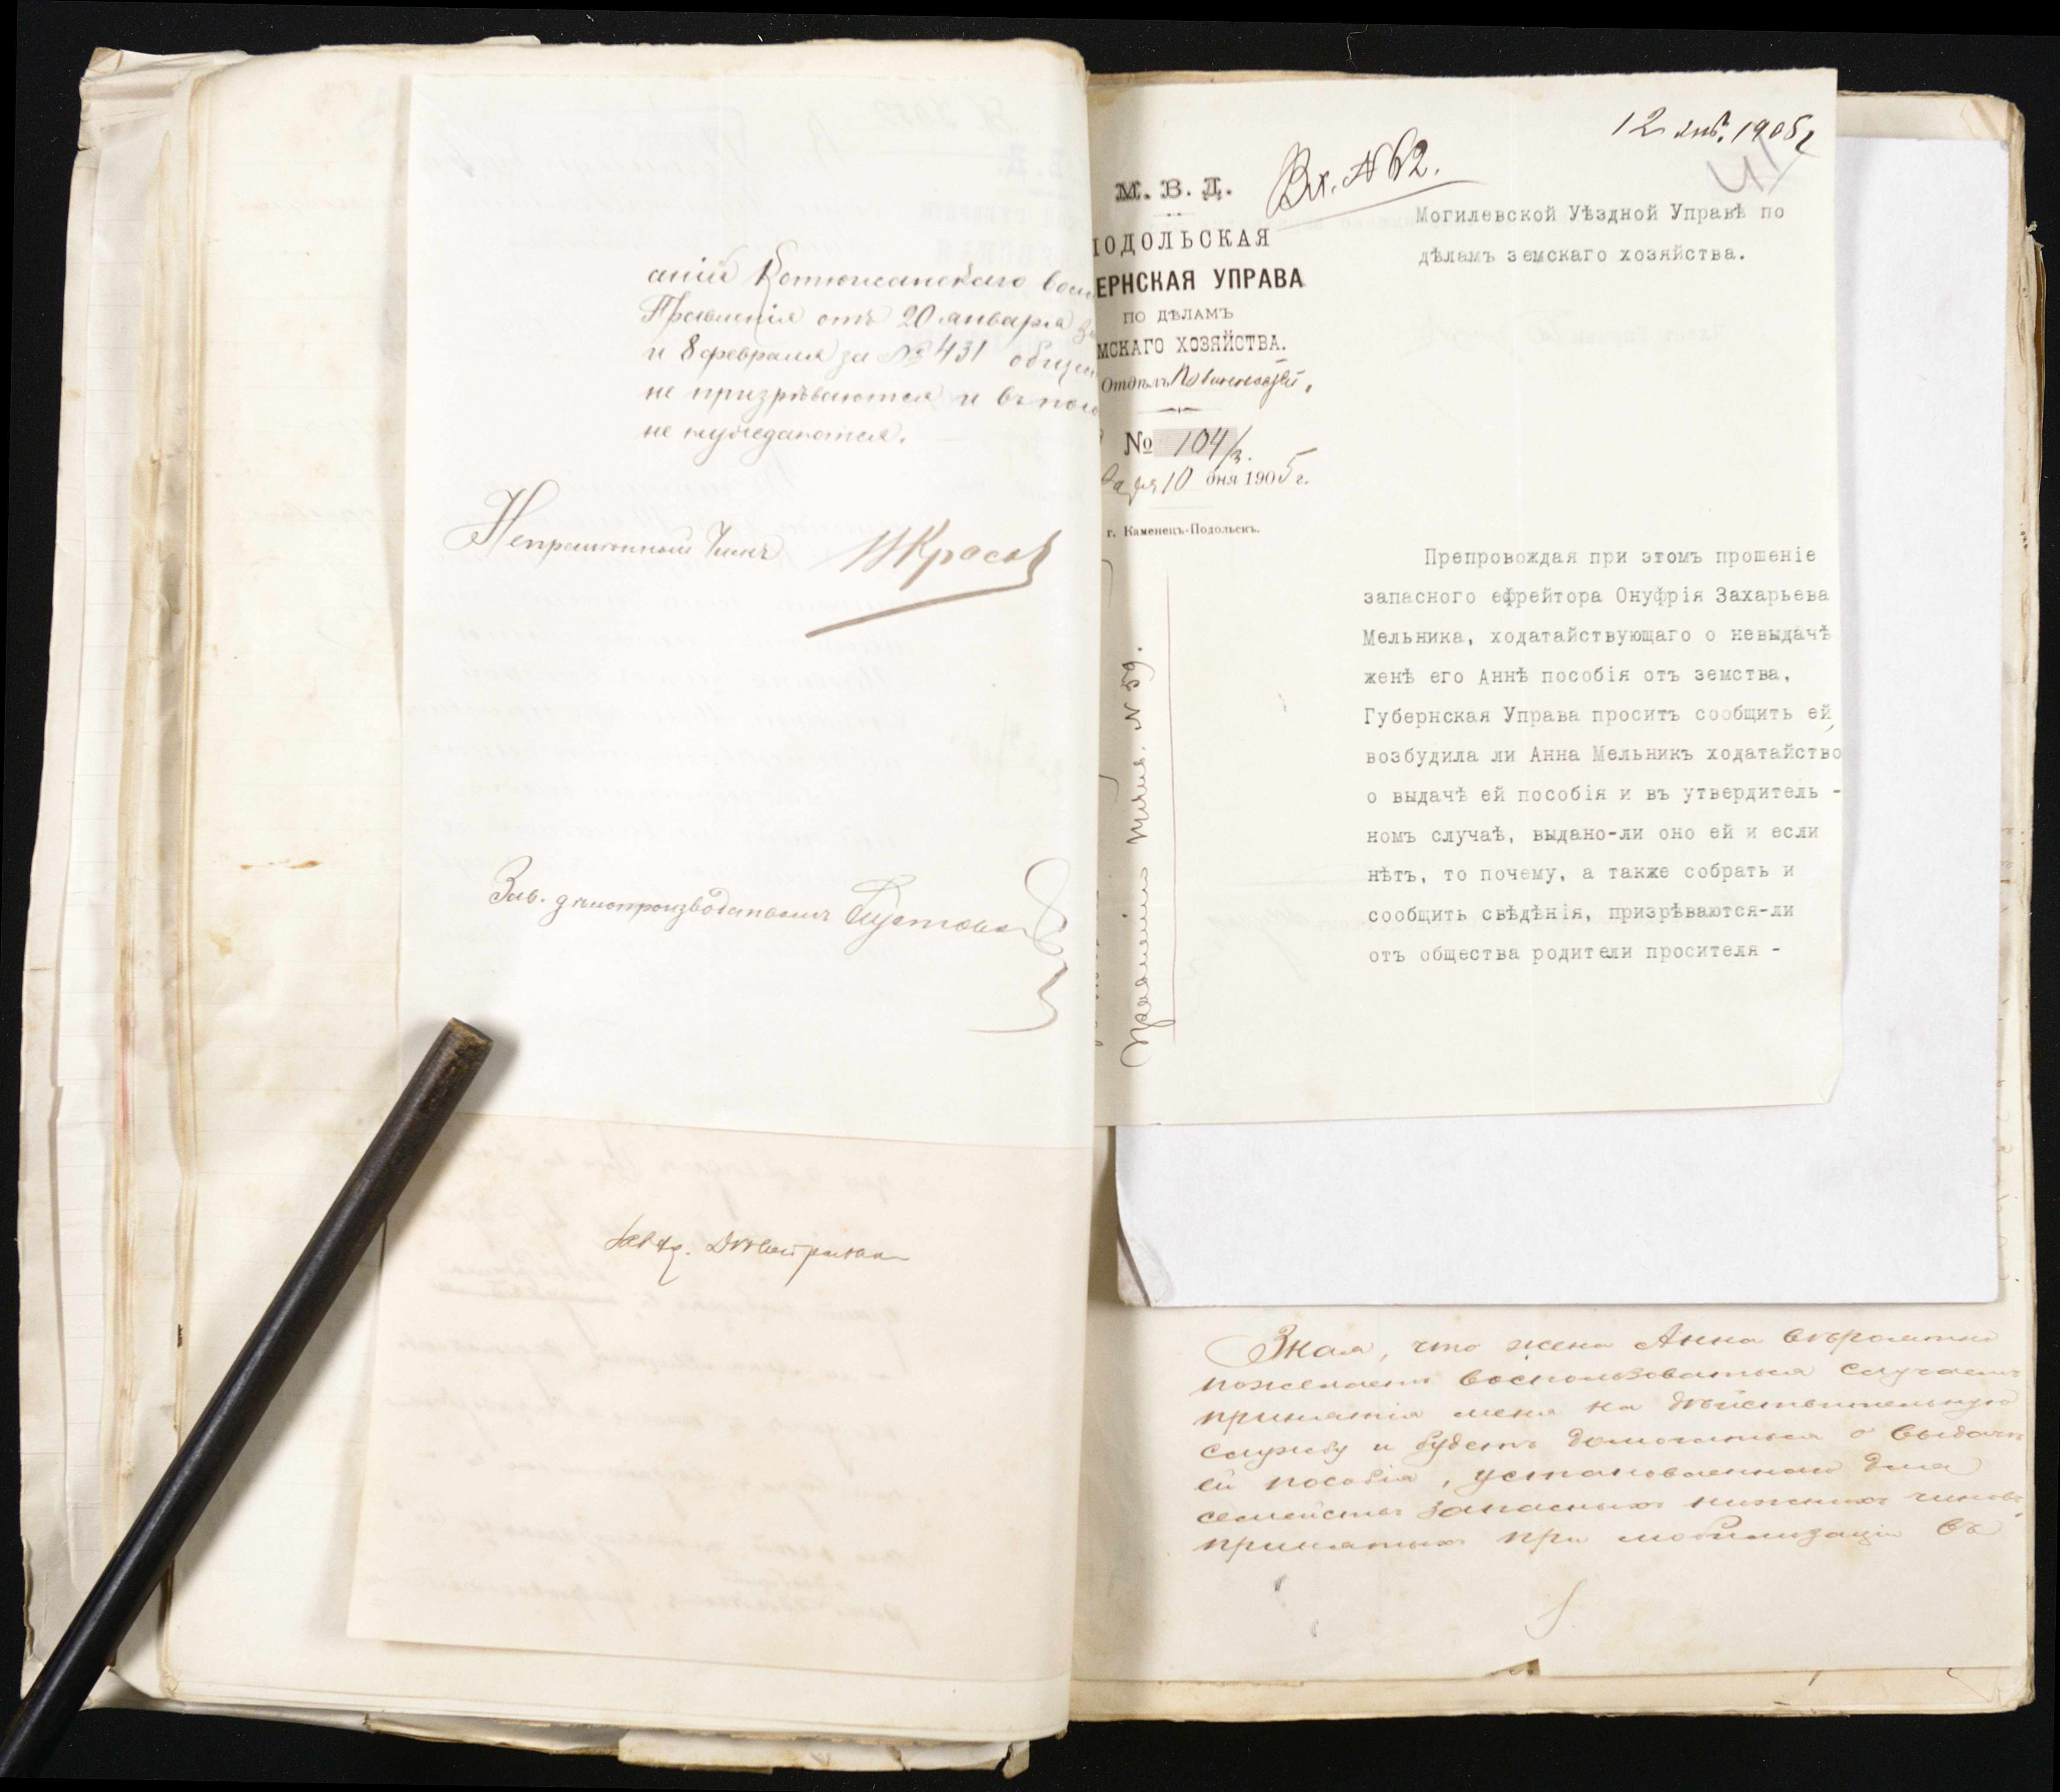 аній Котюжанскаго воло
Правленія отъ 20 января за
и 8 февраля за № 431 общес
не призрѣваются и въ посо
не нуждаются.
Непремѣнный Членъ
Зав. дѣлопроизводствомъ
12 янв. 1905 г
Вх. № 62.
41
М. В. Д.
ПОДОЛЬСКАЯ
ЕРНСКАЯ УПРАВА
ПО ДѢЛАМЪ
МСКАГО ХОЗЯЙСТВА.
Отдѣлъ
№ 104/3.
варя 10 дня 1905 г.
г. Каменецъ-Подольскъ.
Могилевской Уѣздной Управѣ по
дѣламъ земскаго хозяйства.
Препровождая при этомъ прошеніе
запаснаго ефрейтора Онуфрія Захарьева
Мельника, ходатайствующаго о невыдачѣ
женѣ его Аннѣ пособія отъ земства,
Губернская Управа проситъ сообщить ей,
возбудила ли Анна Мельникъ ходатайство
о выдачѣ ей пособія и въ утвердитель -
номъ случаѣ, выдано-ли оно ей и если
нѣтъ, то почему, а также собрать и
сообщить свѣдѣнія, призрѣваются-ли
отъ общества родители просителя -
№ 59.
Зная, что жена Анна вѣроятно
пожелаетъ воспользоваться случаемъ
принятія меня на дѣйствительную
службу и будетъ домогаться о выдачѣ
ей пособія, установленнаго для
семействъ запасныхъ нижнихъ чиновъ,
принятыхъ при мобилизаціи въ